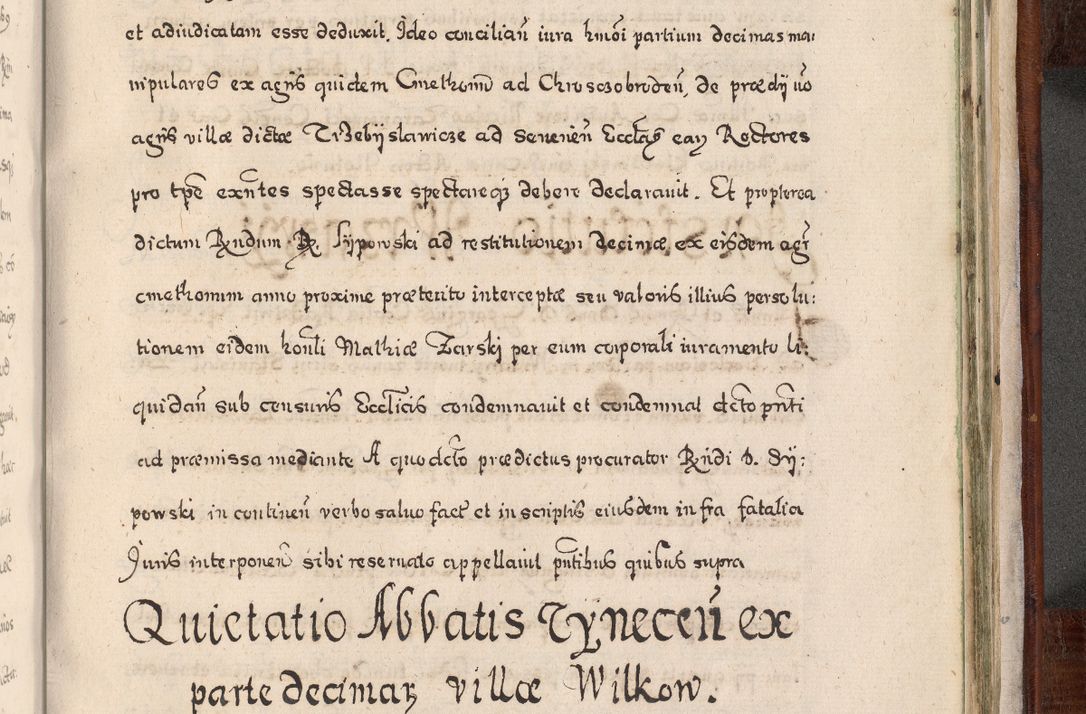 et adiudicatam esse deduxit. Ideo conciliañ iura hmoi partium decimas ma:
nipulares ex agris quidem Cmethonũ ad Chroszobrodeñ, de prædijs vō
agris villæ dictæ Trzebÿslawicze ad Seueneñ Ecclãs eaꝝ Rectores
pro tpe exñtes spectasse spectareqȝ debere declarauit. Et propterea
dictum Rndum D. Sÿpowski ad restitutionem decimæ ex eisdem agr̃
cmethonum anno proxime præterito interceptæ seu valoris illius persolu:
tionem eidem honli Mathiæ Zarski per eum corporali iuramento li:
quidañ sub censuris Ecclicis condemnauit et condemnat dcto pñti
ad præmissa mediante A quo dcto prædictus procurator Rndi D. Sÿ:
powski in contineñ verbo saluo fact̃ et in scriptis eiusdem infra fatalia
Juris interponeñ sibi reseruato appellauit pñtibus quibus supra
Quietatio Abbatis Tÿneceñ ex
parte decimaꝝ villæ Wilkow.